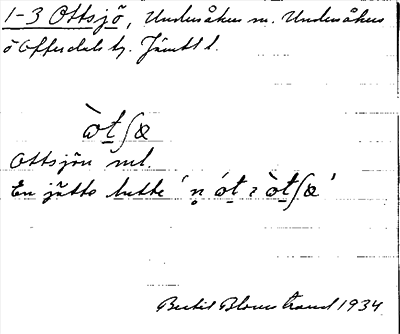 1-3 Ottsjö, Undersåkers sn. Undersåkers
o Offerdals tg. Jämtl l.
ὼt̲ʃæ
Ottsjön ml.
En jätte hette ' n̥ ót ɩ ὼt̲ʃæ '
Bertil Blomstrand 1934